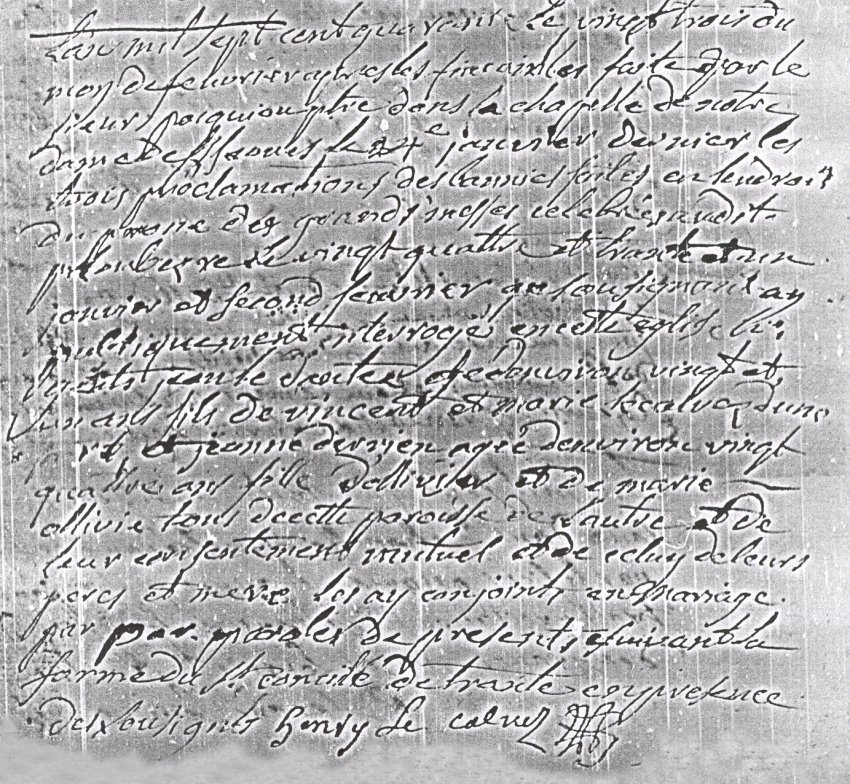 Lan mil sept cent quarante Le vingt trois du
mois de feuvrier apres les fiancailles faite par le
sieur poiquion ptre dans la chapelle de notre
dame de janvier dernier les
trois proclamations des bannies faites en lendroit
du prone des grands messes celebrées audit
le vingt quatre et trante et un
janvier et second feuvrier je soussignant ay
publiquement interrogé en cette eglise
jean le agé denviron vingt et
un ans fils de vincent et marie le calvez dune
pt et jeanne derrien agée denviron vingt
quattre ans fille dollivier et de marie
ollivie tous de cette paroisse de lautre et de
leur consentement mutuel et de celuy de leurs
peres et mere les ay conjoints en mariage
par par paroles de present suivant la
forme du st concile de trante en presence
des sousignés henry Le calvez